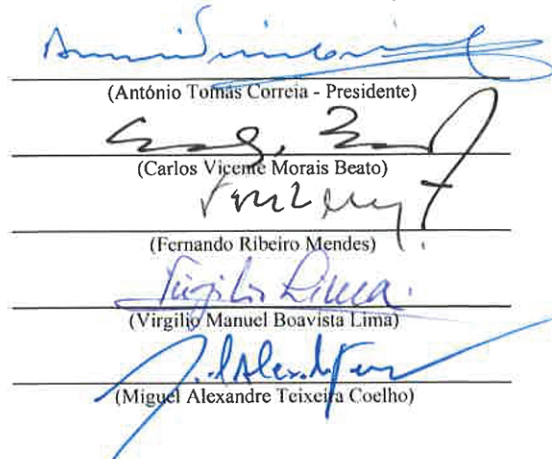 (António Tomás Correia - Presidente)
(Carlos Vicente Morais Beato)
(Fernando Ribeiro Mendes)
Virgílio Lima.
(Virgilio Manuel Boavista Lima)
(Miguel Alexandre Teixeira Coelho)